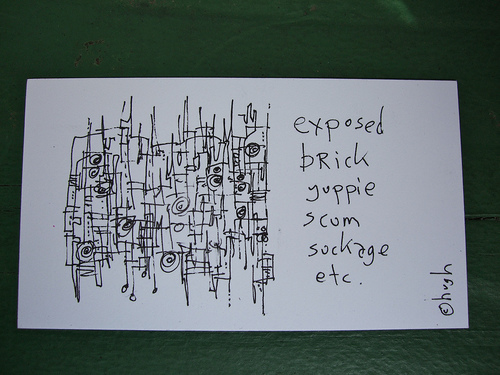 exposed
bRick
yuppie
scum
suckage
etc.
©hugh